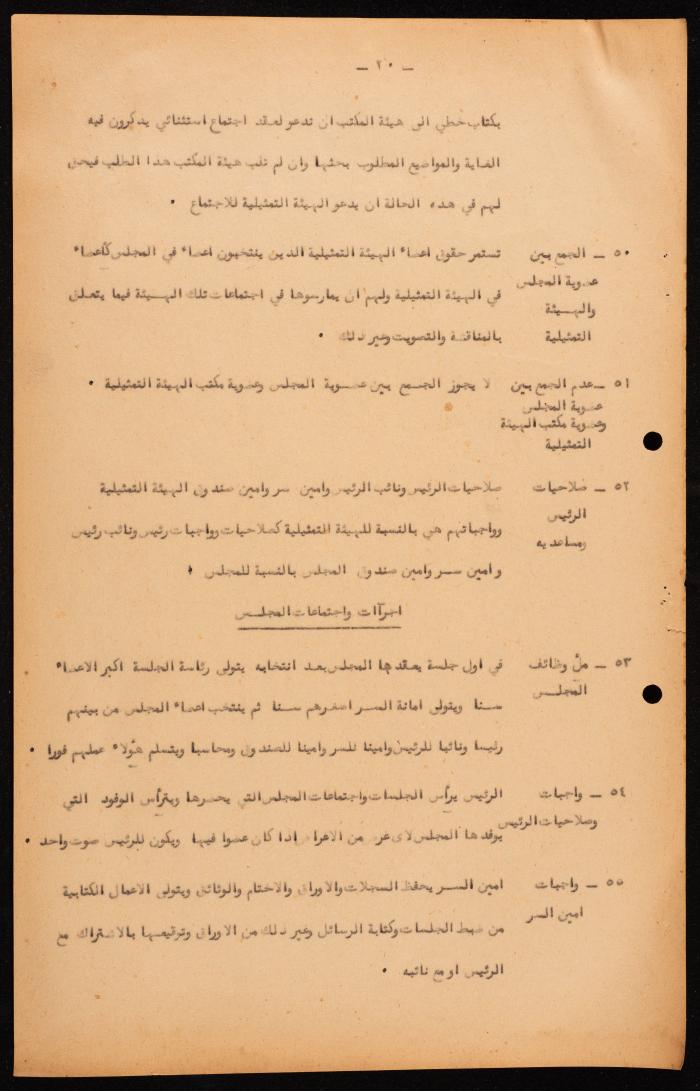 - ٢٠ -
بكتاب خطي الى هيئة المكتب ان تدعو لعقد اجتماع استثنائي يذكرون فيه
الغاية والمواضيع المطلوب بحثها وان لم تلب هيئة المكتب هذا الطلب فيحق
لهم في هذه الحالة ان يدعو الهيئة التمثيلية للاجتماع .
٥٠ - الجمع بين
عضوية المجلس
والهيئة
التمثيلية
تستمر حقوق اعضاء الهيئة التمثيلية الذين ينتخبون اعضاء في المجلس كأعضاء
في الهيئة التمثيلية ولهم ان يمارسوها في اجتماعات تلك الهيئة فيما يتعلق
بالمناقشة والتصويت وغير ذلك .
٥١ - عدم الجمع بين
عضوية المجلس
وعضوية مكتب الهيئة
التمثيلية
لا يجوز الجمع بين عضوية المجلس وعضوية مكتب الهيئة التمثيلية .
٥٢ - صلاحيات
الرئيس
ومساعديه
صلاحيات الرئيس ونائب الرئيس وامين سر وامين صندوق الهيئة التمثيلية
وواجباتهم هي بالنسبة للهيئة التمثيلية كصلاحيات وواجبات رئيس ونائب رئيس
وامين سر وامين صندوق المجلس بالنسبة للمجلس .
اجراآت واجتماعات المجلس
٥٣ - ملء وظائف
المجلس
في اول جلسة يعقدها المجلس بعد انتخابه يتولى رئاسة الجلسة اكبر الاعضاء
سنا ويتولى امانة السر اصغرهم سنا ثم ينتخب اعضاء المجلس من بينهم
رئيسا ونائبا للرئيس وامينا للسر وامينا للصندوق ومحاسبا ويتسلم هؤلاء عملهم فورا .
٥٤ - واجبات
وصلاحيات الرئيس
الرئيس يرأس الجلسات واجتماعات المجلس التي يحضرها ويترأس الوفود التي
يوفدها المجلس لاى غرض من الاغراض اذا كان عضوا فيها ويكون للرئيس صوت واحد .
٥٥ - واجبات
امين السر
امين السر يحفظ السجلات والاوراق والاختام والوثائق ويتولى الاعمال الكتابية
من ضبط الجلسات وكتابة الرسائل وغير ذلك من الاوراق وتوقيعها بالاشتراك مع
الرئيس او مع نائبه .